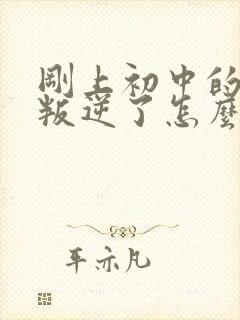 剛上初中的
叛逆了怎麼
平亦凡